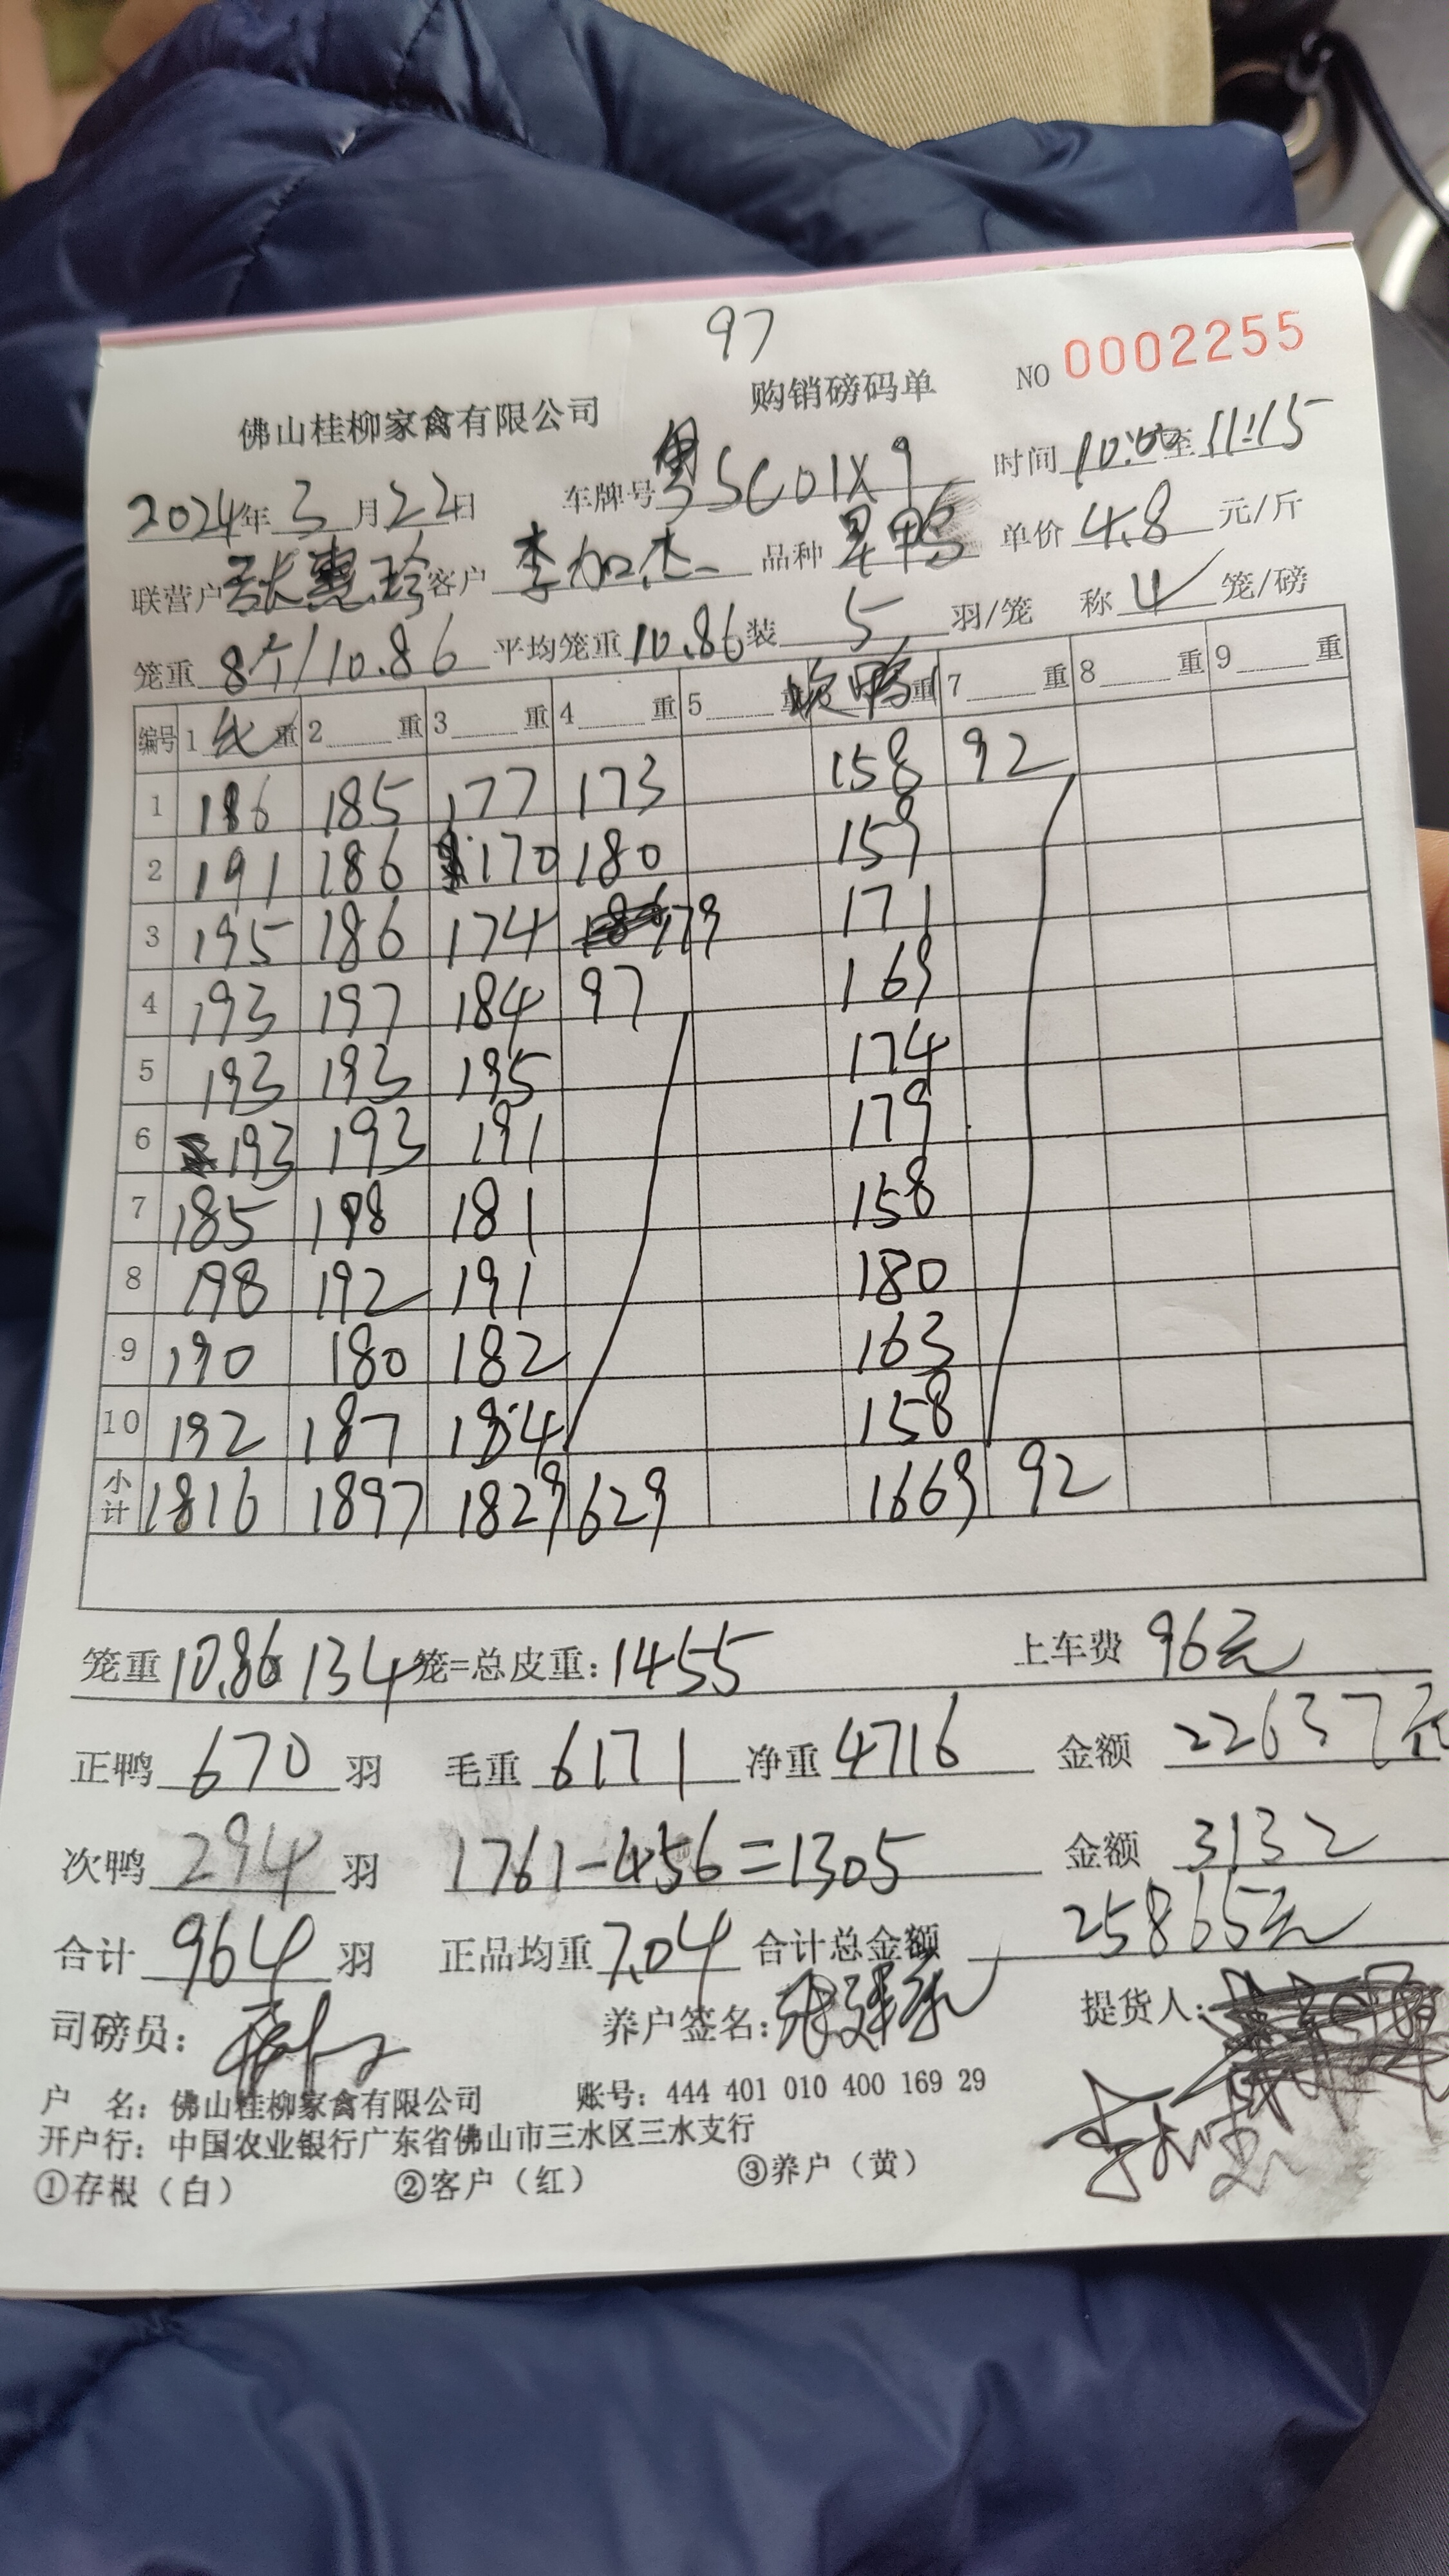 97
佛山桂柳家禽有限公司 购销磅码单 NO 0002255
2024年3月22日 车牌号 粤SC01X9 时间 10:00至11:15
联营户 张惠珍 客户 李加杰 品种 旱鸭 单价 4.8 元/斤
笼重 8个/10.86 平均笼重 10.86 装 5 羽/笼 称 4 笼/磅
编号 1 重 2 重 3 重 4 重 5 次鸭 重 7 重 8 重 9 重
1 186 185 177 173 158 92
2 191 186 170 180 159
3 195 186 174 179 171
4 193 197 184 97 169
5 193 193 195 174
6 193 193 191 179
7 185 198 181 158
8 198 192 191 180
9 190 180 182 163
10 192 187 184 158
小计 1816 1897 1829 629 1669 92
笼重 10.86 134 笼=总皮重: 1455 上车费 96元
正鸭 670 羽 毛重 6171 净重 4716 金额 22637元
次鸭 294 羽 1761-456=1305 金额 3132
合计 964 羽 正品均重 7.04 合计总金额 25865元
司磅员: 养户签名: 提货人:
户 名: 佛山桂柳家禽有限公司 账号: 444 401 010 400 169 29
开户行: 中国农业银行广东省佛山市三水区三水支行
①存根(白) ②客户(红) ③养户(黄)